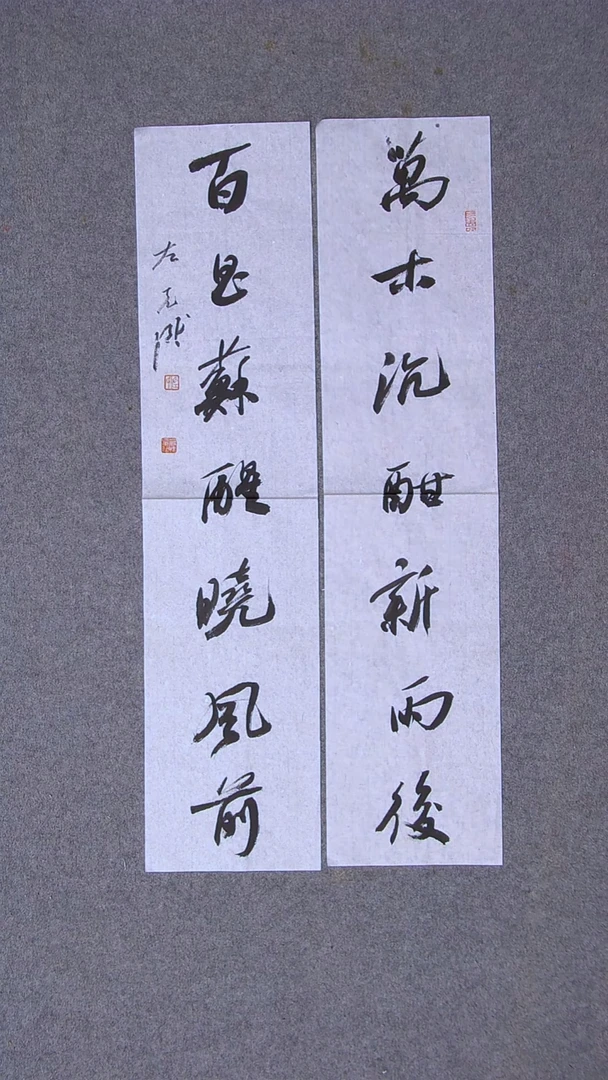 萬木沉酣新雨後
百昌蘇醒曉風前
左